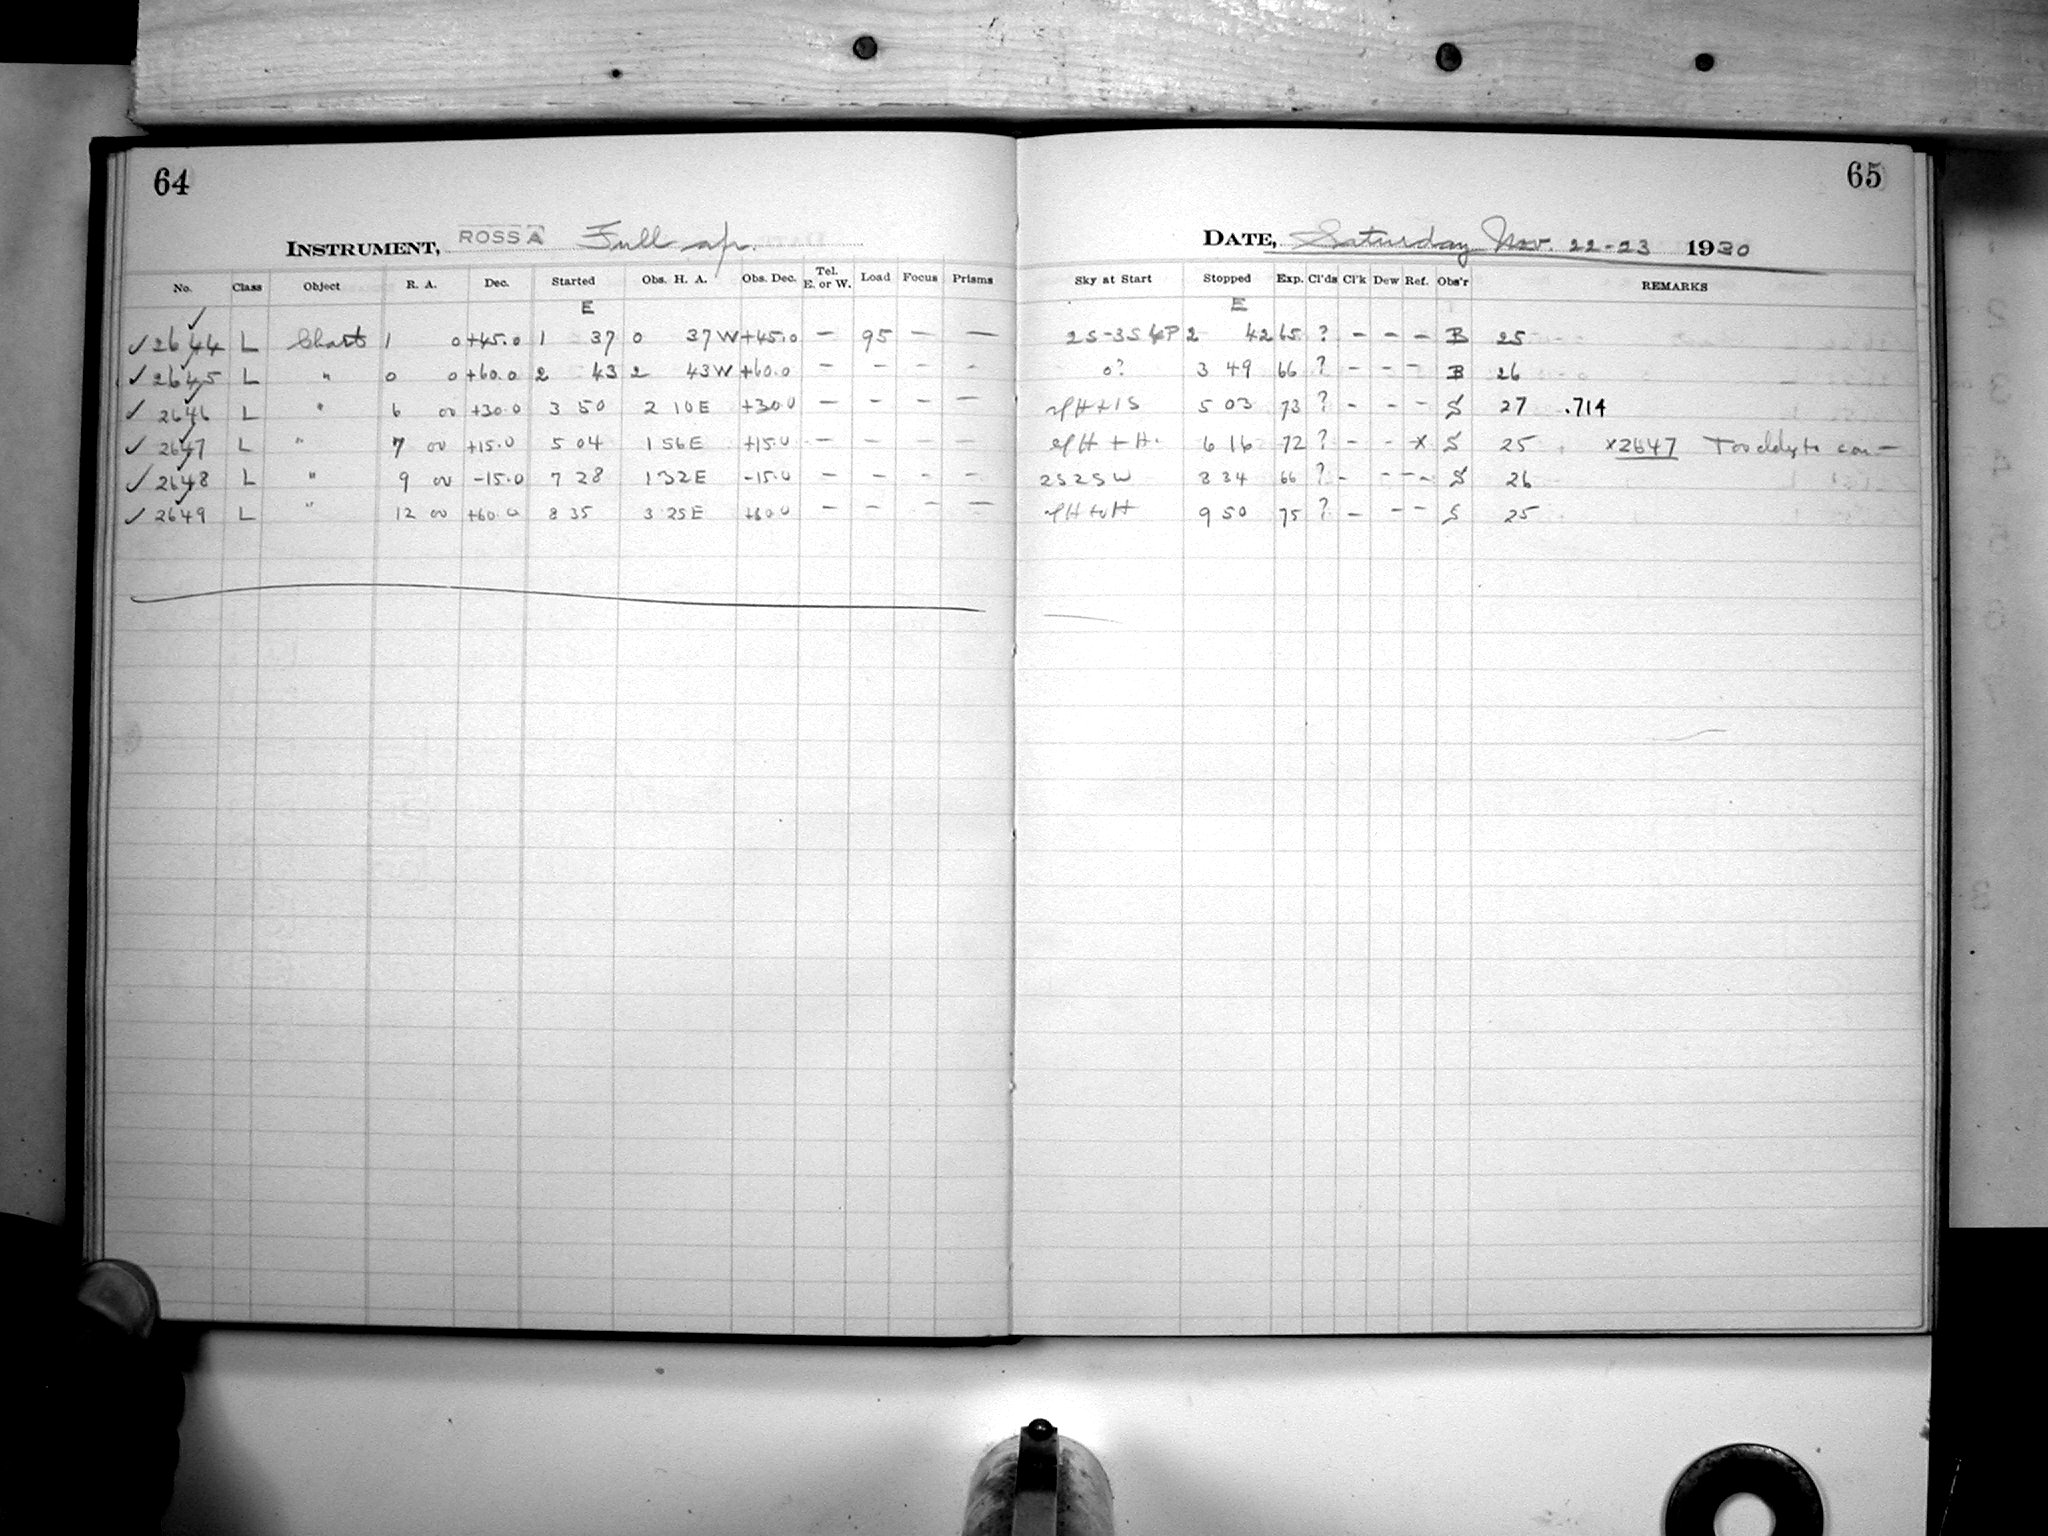 64
INSTRUMENT, ROSS A Full ap.
No. Class Object R. A. Dec. Started Obs. H. A. Obs. Dec. Tel. E. or W. Load Focus Prisms
E
✓ 2644 L Charts 1 0 +45.0 1 37 0 37 W +45.0 – 95 – –
✓ 2645 L " 0 0 +60.0 2 43 2 43 W +60.0 – – – –
✓ 2646 L " 6 00 +30.0 3 50 2 10 E +30.0 – – – –
✓ 2647 L " 7 00 +15.0 5 04 1 56 E +15.0 – – – –
✓ 2648 L " 9 00 -15.0 7 28 1 32 E -15.0 – – – –
✓ 2649 L " 12 00 +60.0 8 35 3 25 E +60.0 – – – –
65
DATE, Saturday Nov. 22-23 1930
Sky at Start Stopped Exp. Cl'ds Cl'k Dew Ref. Obs'r REMARKS
E
2S-3S 2 42 65 ? – – – B 25
0? 3 49 66 ? – – – B 26
5 03 73 ? – – – S 27 .714
6 16 72 ? – – x S 25 x2647
2S2SW 8 34 66 ? – – – S 26
9 50 75 ? – – – S 25